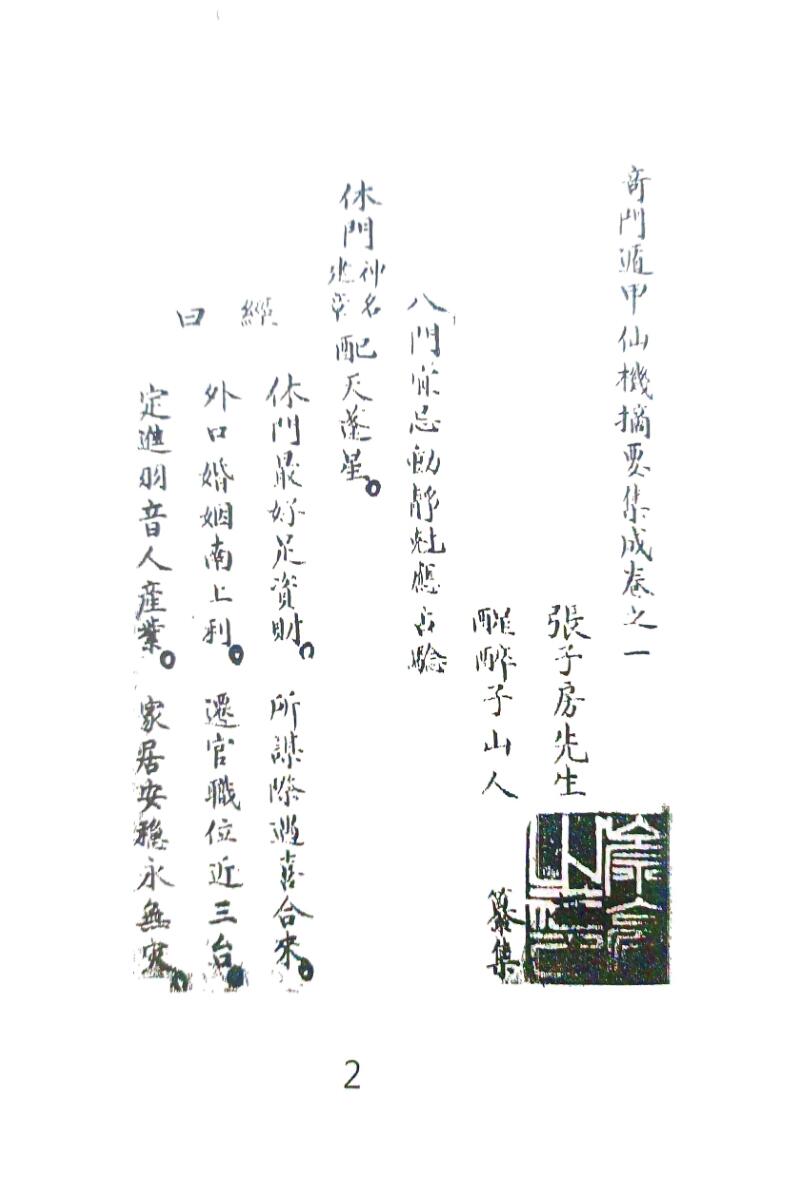 奇門遁甲仙機摘要集成卷之一
張子房先生
醒醉子山人 纂集
八門宜忌動靜尅應占驗
休門神名配天蓬星。
經曰
休門最好足資財。所謀際遇喜合來。
外口婚姻南上利。遷官職位近三台。
定進羽音人產業。家居安穩永無灾。
2